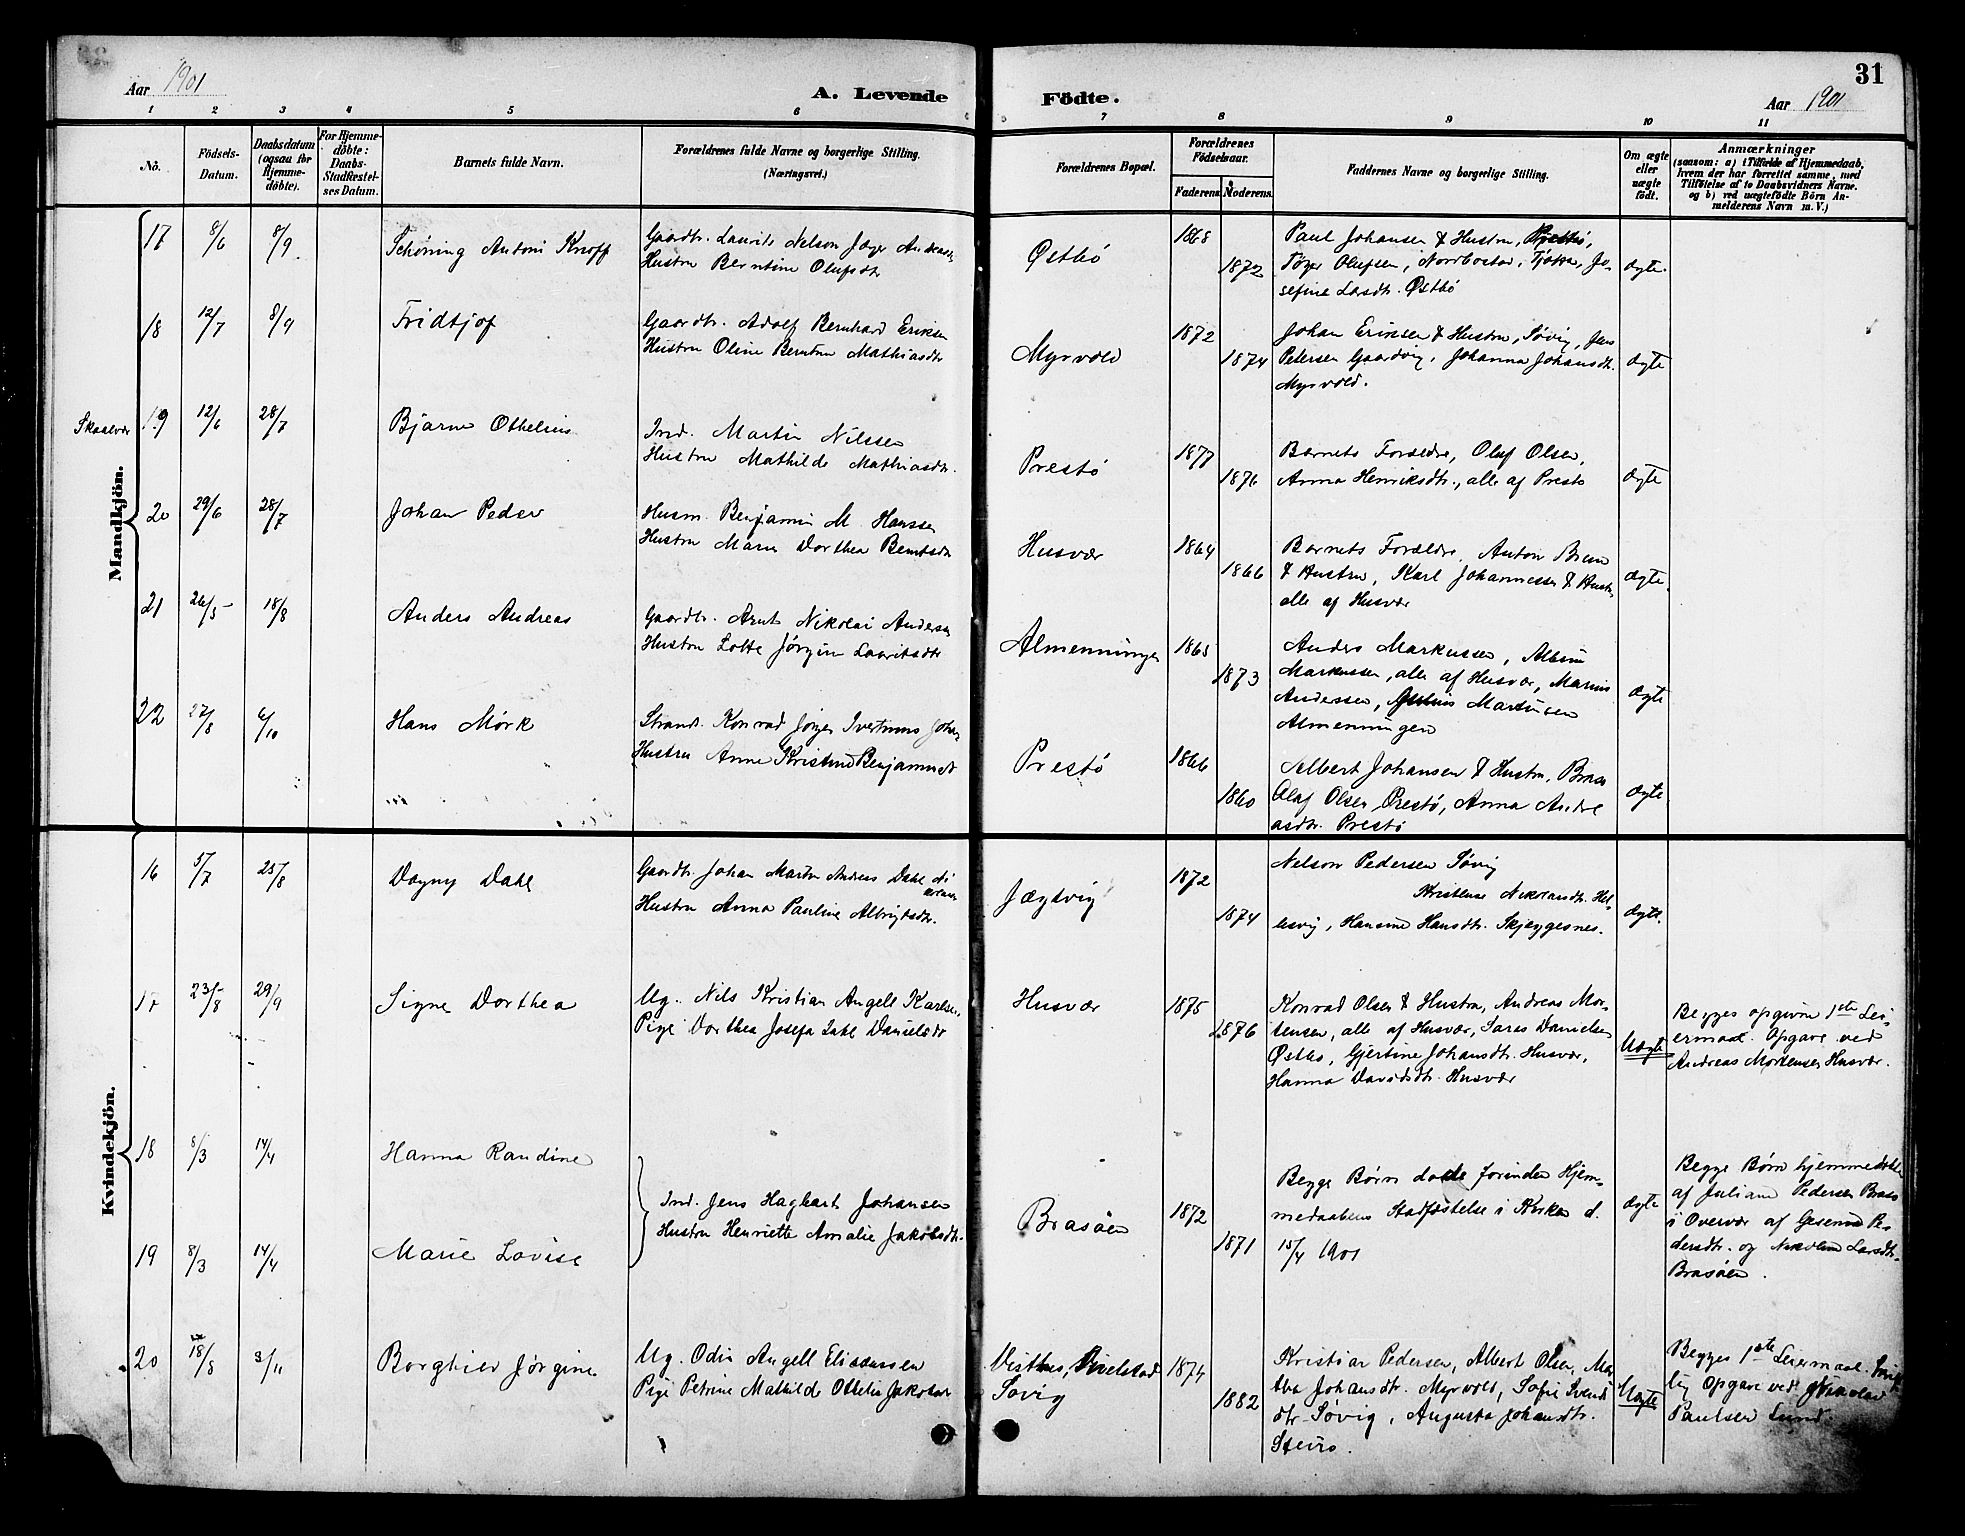 31
Aar 1901
A. Levende
Födte.
Aar 1901
1 2 3 4 5 6 7 8 9 10 11
No.
Födsels-Datum.
Daabsdatum (ogsaa for Hjemme-döbte).
For Hjemme-döbte: Daabs-Stadfæstel-ses Datum.
Barnets fulde Navn.
Forældrenes fulde Navne og borgerlige Stilling.
(Næringsvei.)
Forældrenes Bopæl.
Forældrenes Födselsaar.
Faderens. Moderens.
Faddernes Navne og borgerlige Stilling.
Om ægte eller uægte födt.
Anmærkninger
(saasom: a) i Tilfælde af Hjemmedaab,
hvem der har forrettet samme, med
Tilföielse af to Daabsvidners Navne.
og b) ved uægtefödte Börn An-
melderens Navn m. V.)
Mandkjön.
17 8/6 8/9 Schøning Antoni Knoff
Gaardbr. Laurits Nelson Jæger
Hustru Berntine Olufsdtr
Østbö
1868
1872
Paul Johansen & Hustru,
Olufsen, Nordbostad, Tjøtta, Jo-
sefine Larsdtr. Østbö
ægte.
18 12/7 8/9 Fridtjof
Gaardbr. Adolf Bernhard Eriksen
Hustru Oline Berntine Mathiasdtr
Myrvold
1872
1874
Johan Eriksen & Hustru, Søvig, Jens
Petersen Gaardvig, Johanna Johansdtr.
Myrvold.
ægte
Skaalvær 19 12/6 28/7 Bjarne Othelius
Ind. Martin Nilssen
Hustru Mathilde Mathiasdtr.
Prestö
1877
1876
Barnets Forældre, Oluf Olsen,
Anna Henriksdtr., alle af Prestö
ægte
20 29/6 28/7 Johan Peder
Husm. Benjamin M. Hanssen
Hustru Marie Dorthea Berntsdtr
Husvær
1864
1866
Barnets Forældre, Anton Bruun
& Hustru, Karl Johannessen & Hustru
alle af Husvær
ægte.
21 26/5 18/8 Anders Andreas
Gaardbr. Arnt Nikolai Andersen
Hustru Lotte Jörgine Lauritsdtr
Almenningen
1865
1873
Anders Markussen, Albin
Markussen, alle af Husvær, Marius
Andersen, Martinsen
Almenningen
ægte
22 27/8 6/10 Hans Mörk
Strand. Konrad Jörgen
Hustru Anne Kristine Benjaminsdtr
Prestö
1866
1860
Albert Johansen & Hustru, Brasö
Oluf Olsen Prestö, Anna Andre
asdtr. Prestö
ægte
Kvindekjön.
16 5/7 25/8 Dagny Dahl
Gaardbr. Johan Martin Andreas Dahl
Hustru Anna Pauline Albrigtsdtr.
Jægtvig
1872
1874
Nelson Pedersen Søvig
Kristense Nikolaisdtr. Hel-
esvig, Hansine Hansdtr. Skjeggesnes.
ægte.
17 23/8 29/9 Signe Dorthea
Ug. Nils Kristian Angell Karlsen
Pige Dorthea Josefa Dahl Danielsdtr
Husvær
1875
1876
Konrad Olsen & Hustru, Andreas Mor-
tensen, alle af Husvær, Danielsen
Østbö, Gjertine Johansdtr. Husvær,
Hanna Davidsdtr. Husvær
Uægte
Begges opgivne 1ste Lei-
ermaal. Opgave ved
Andreas Mortensen Husvær.
18 8/3 14/4 Hanna Randine
19 8/3 14/4 Marie Lovise
Ind. Jens Hagbart Johansen
Hustru Henriette Amalie Jakobsdtr.
Brasöen
1872
1871
Begge Börn döde forinden Hjem-
medaabens Stadfæstelse i Kirken d.
15/4 1901
ægte
Begge Börn hjemmedöbte
af Juliane Pedersen Brasö
i Overvær af Gesine Pe-
dersdtr. og Nikoline Larsdtr.
Brasöen.
20 18/8 3/11 Borghild Jörgine
Ug. Odin Angell Eliassen
Pige Petrine Mathilde Othelie Jakobsdtr
Visthus,
Søvig
1874
1882
Kristian Pedersen, Albert Olsen, Ma-
tha Johansdtr. Myrvold, Sofie Svends
dtr. Søvig, Augusta Johansdtr.
Steiro.
Uægte
Begges 1ste Leiermaal. Skrift
lig Opgave ved Nikolai
Paulsen Lund.